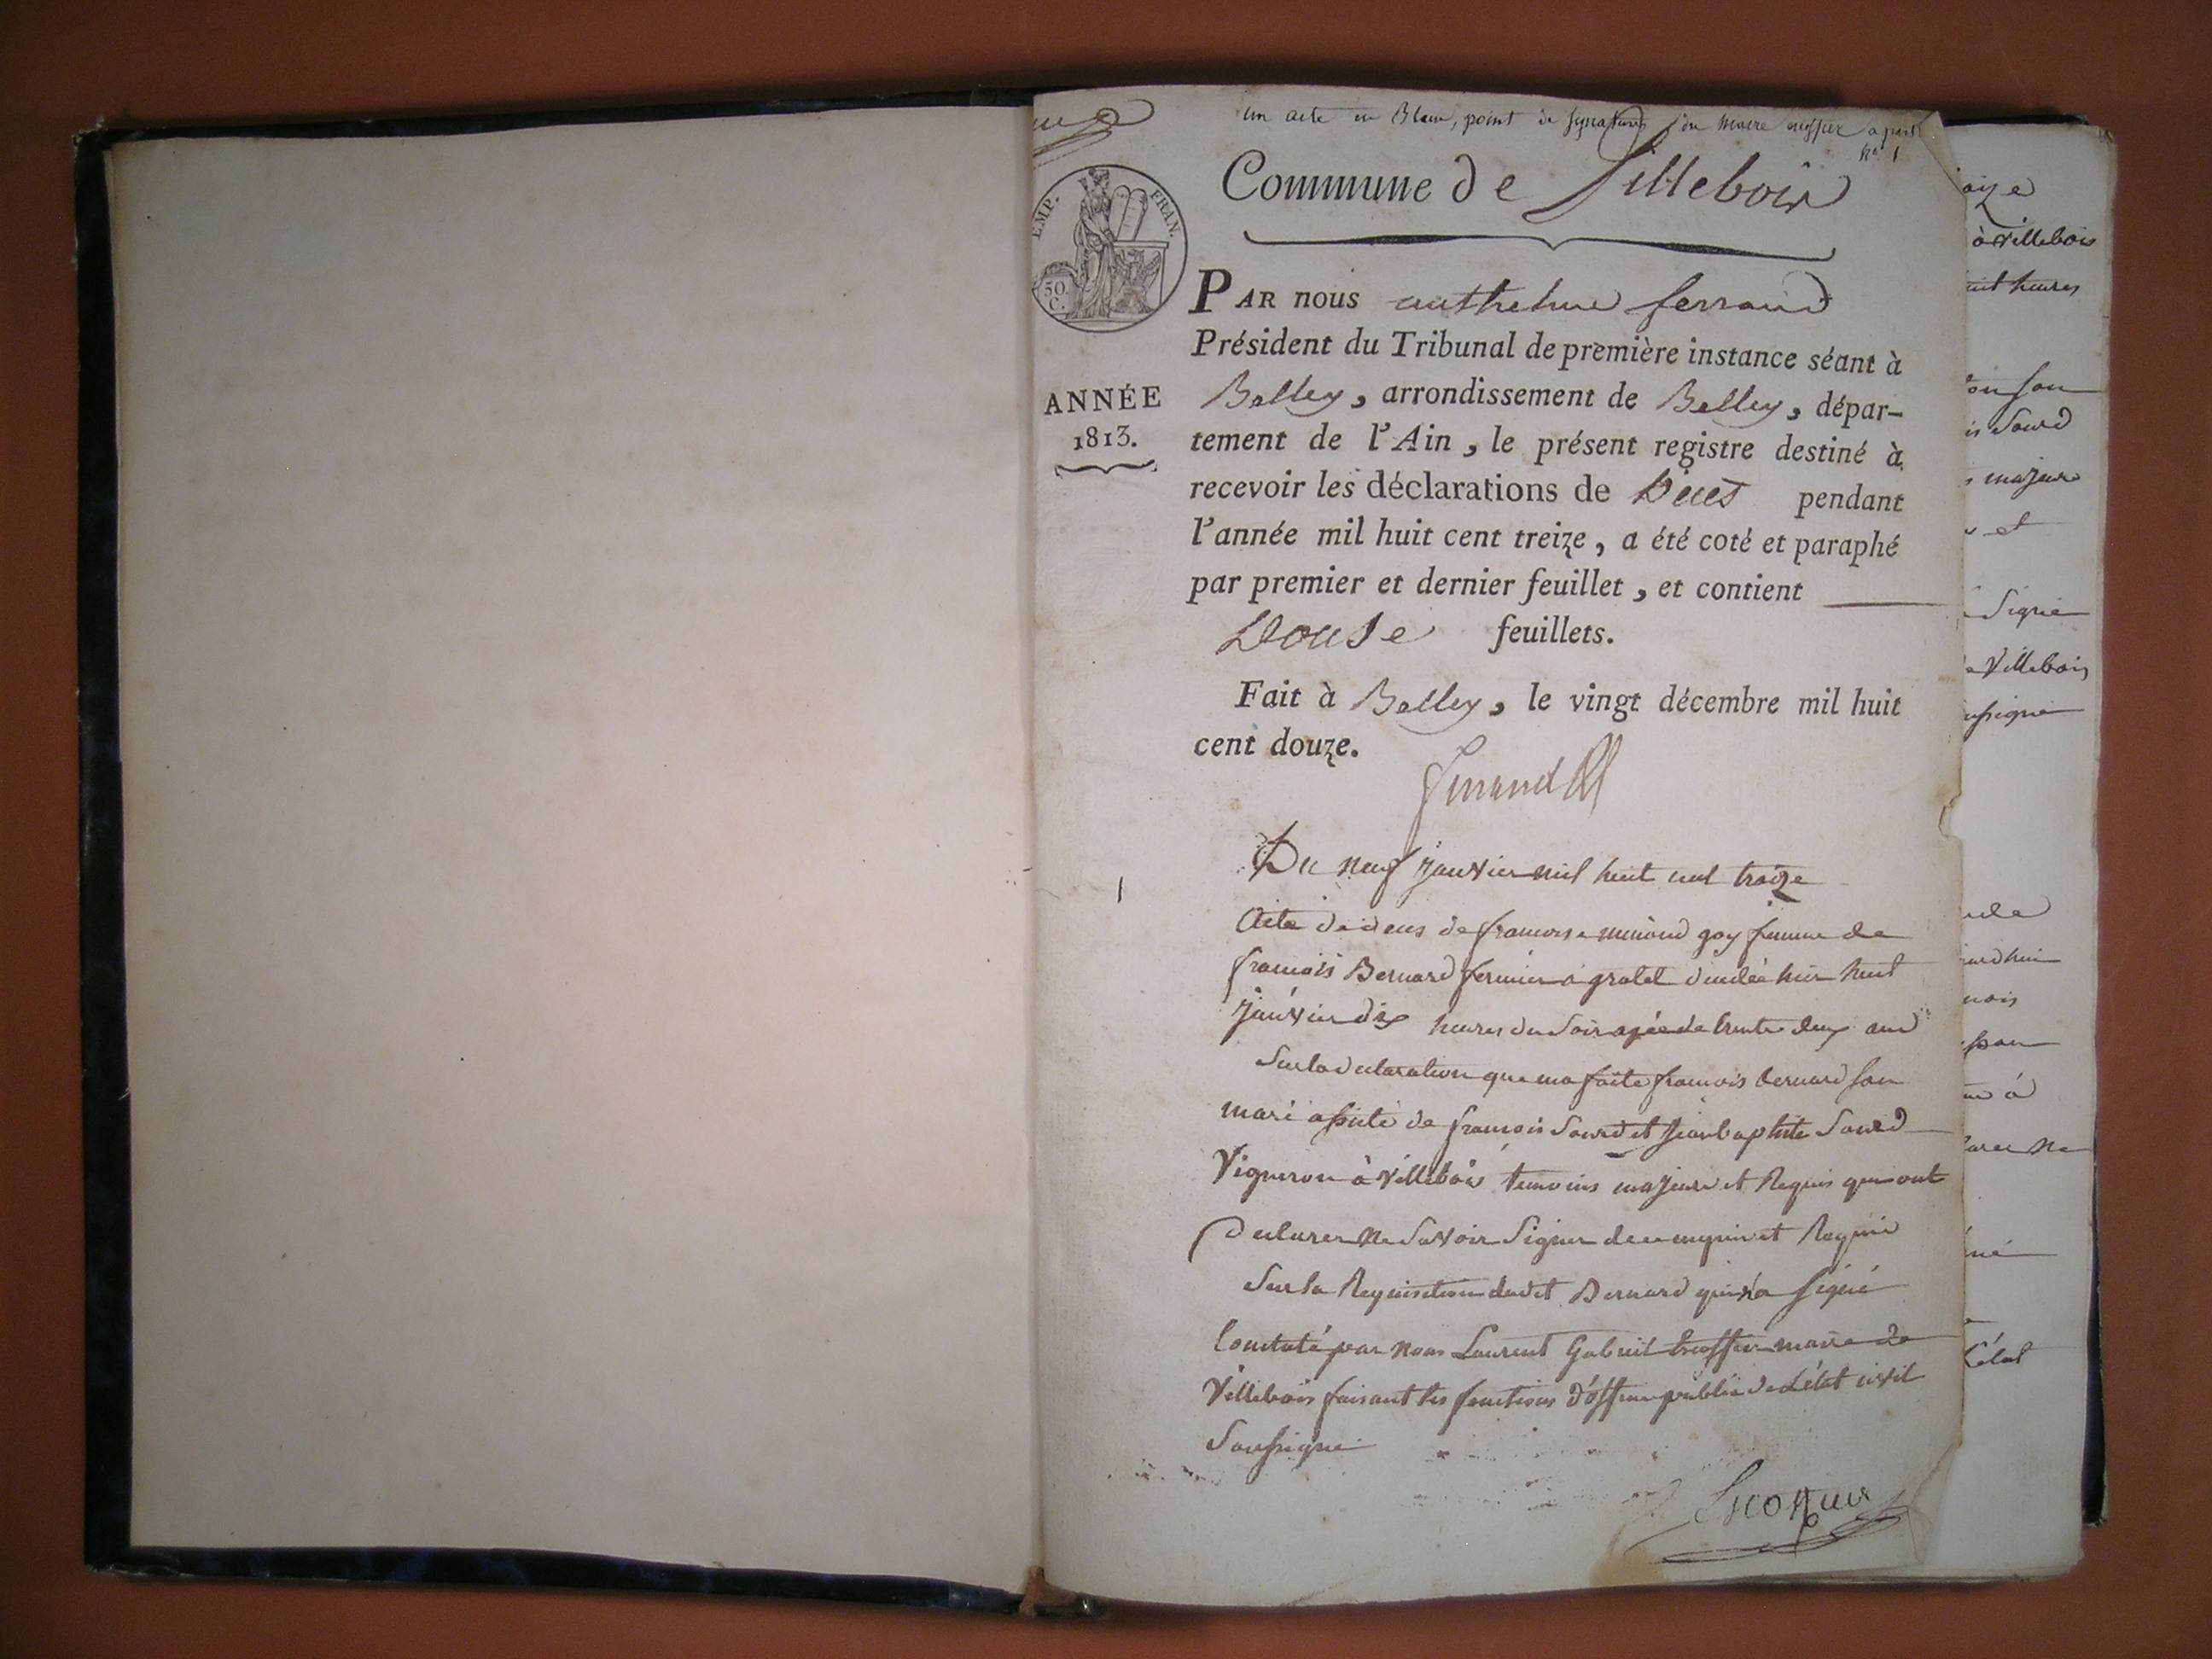 un acte en Blanc, point de signatures du maire
no 1
Commune de Villebois
EMP. FRAN.
50 C.
PAR nous anthelme ferrand
Président du Tribunal de première instance séant à
ANNÉE
1813.
Belley, arrondissement de Belley, dépar-
tement de l'Ain, le présent registre destiné à
recevoir les déclarations de Deces pendant
l'année mil huit cent treize, a été coté et paraphé
par premier et dernier feuillet, et contient
Douse feuillets.
Fait à Belley, le vingt décembre mil huit
cent douze.
ferrand
1
Du neuf janvier mil huit cent treize
Acte de deces de francoise goy femme de
francois Bernard fermier a decedée hier huit
janvier dix heures du soir agée de trente deux ans
Sur la declaration que ma faite françois bernard son
mari assisté de francois Sourd et jean baptiste Sourd
Vigneron à Villebois temoins majeurs et Requis qui ont
declarer ne Savoir Signer de ce enquis et Requis
Sur la Requisition dudit Bernard qui n'a signé
Constaté par nous Laurent Gabriel maire de
Villebois faisant les fonctions d'officier public de L'état civil
Soussigné
à villebois
huit heures
son
Sourd
majeurs
et
Signé
de Villebois
soussigné
mois
à
ne
L'état